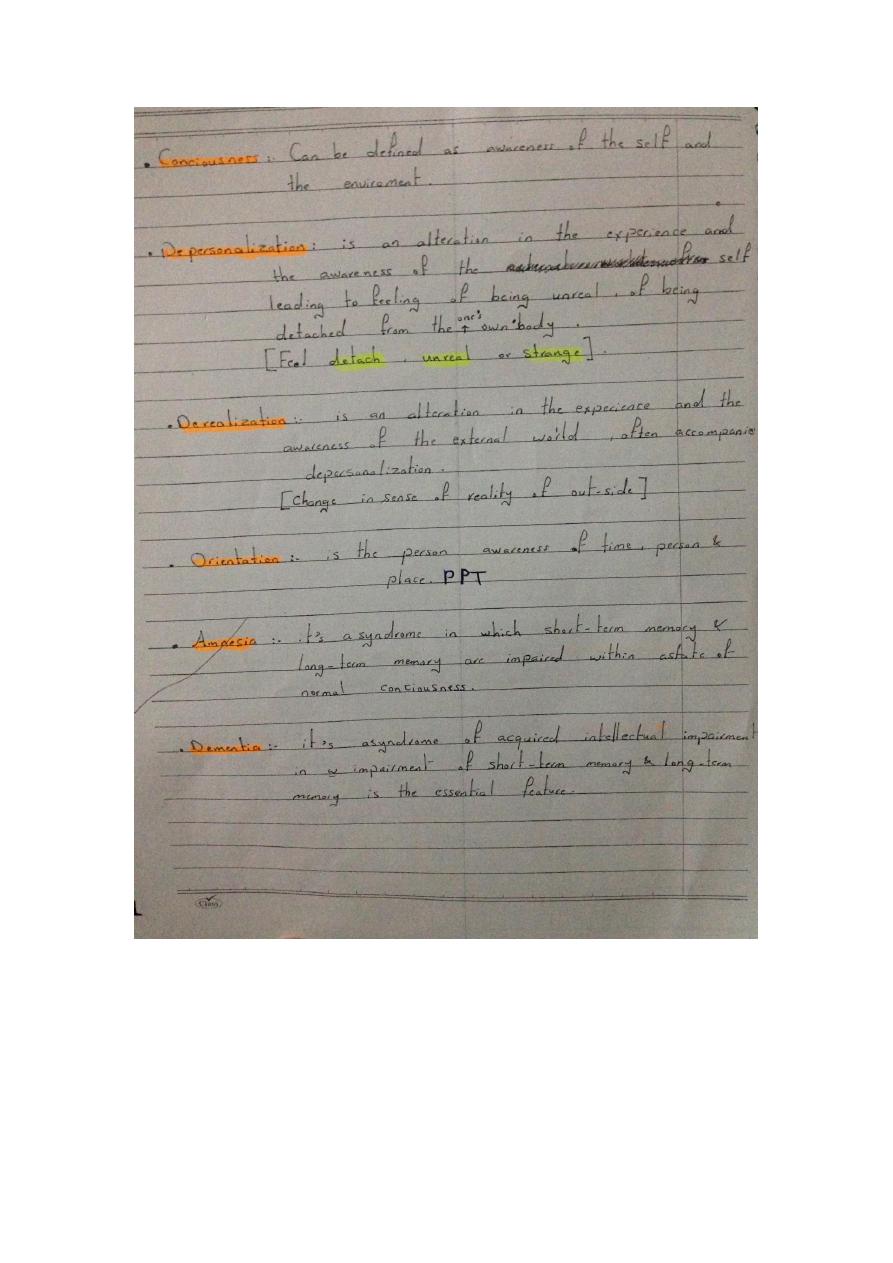 • Conciousness :- Can be defined as awareness of the self and
the enviroment.
• Depersonalization : is an alteration in the experience and
the awareness of the self
leading to feeling of being unreal, of being
detached from the one's own body.
[Feel detach, unreal or strange].
• Derealization :- is an alteration in the experience and the
awareness of the external world, often accompanie
depersonalization.
[Change in sense of reality of out-side]
• Orientation :- is the person awareness of time, person &
place. PPT
• Amnesia :- it's a syndrome in which short-term memory &
long-term memory are impaired within astate of
normal conciousness.
• Dementia :- it's asyndrome of acquired intellectual impairment
in impairment of short-term memory & long-term
memory is the essential feature.